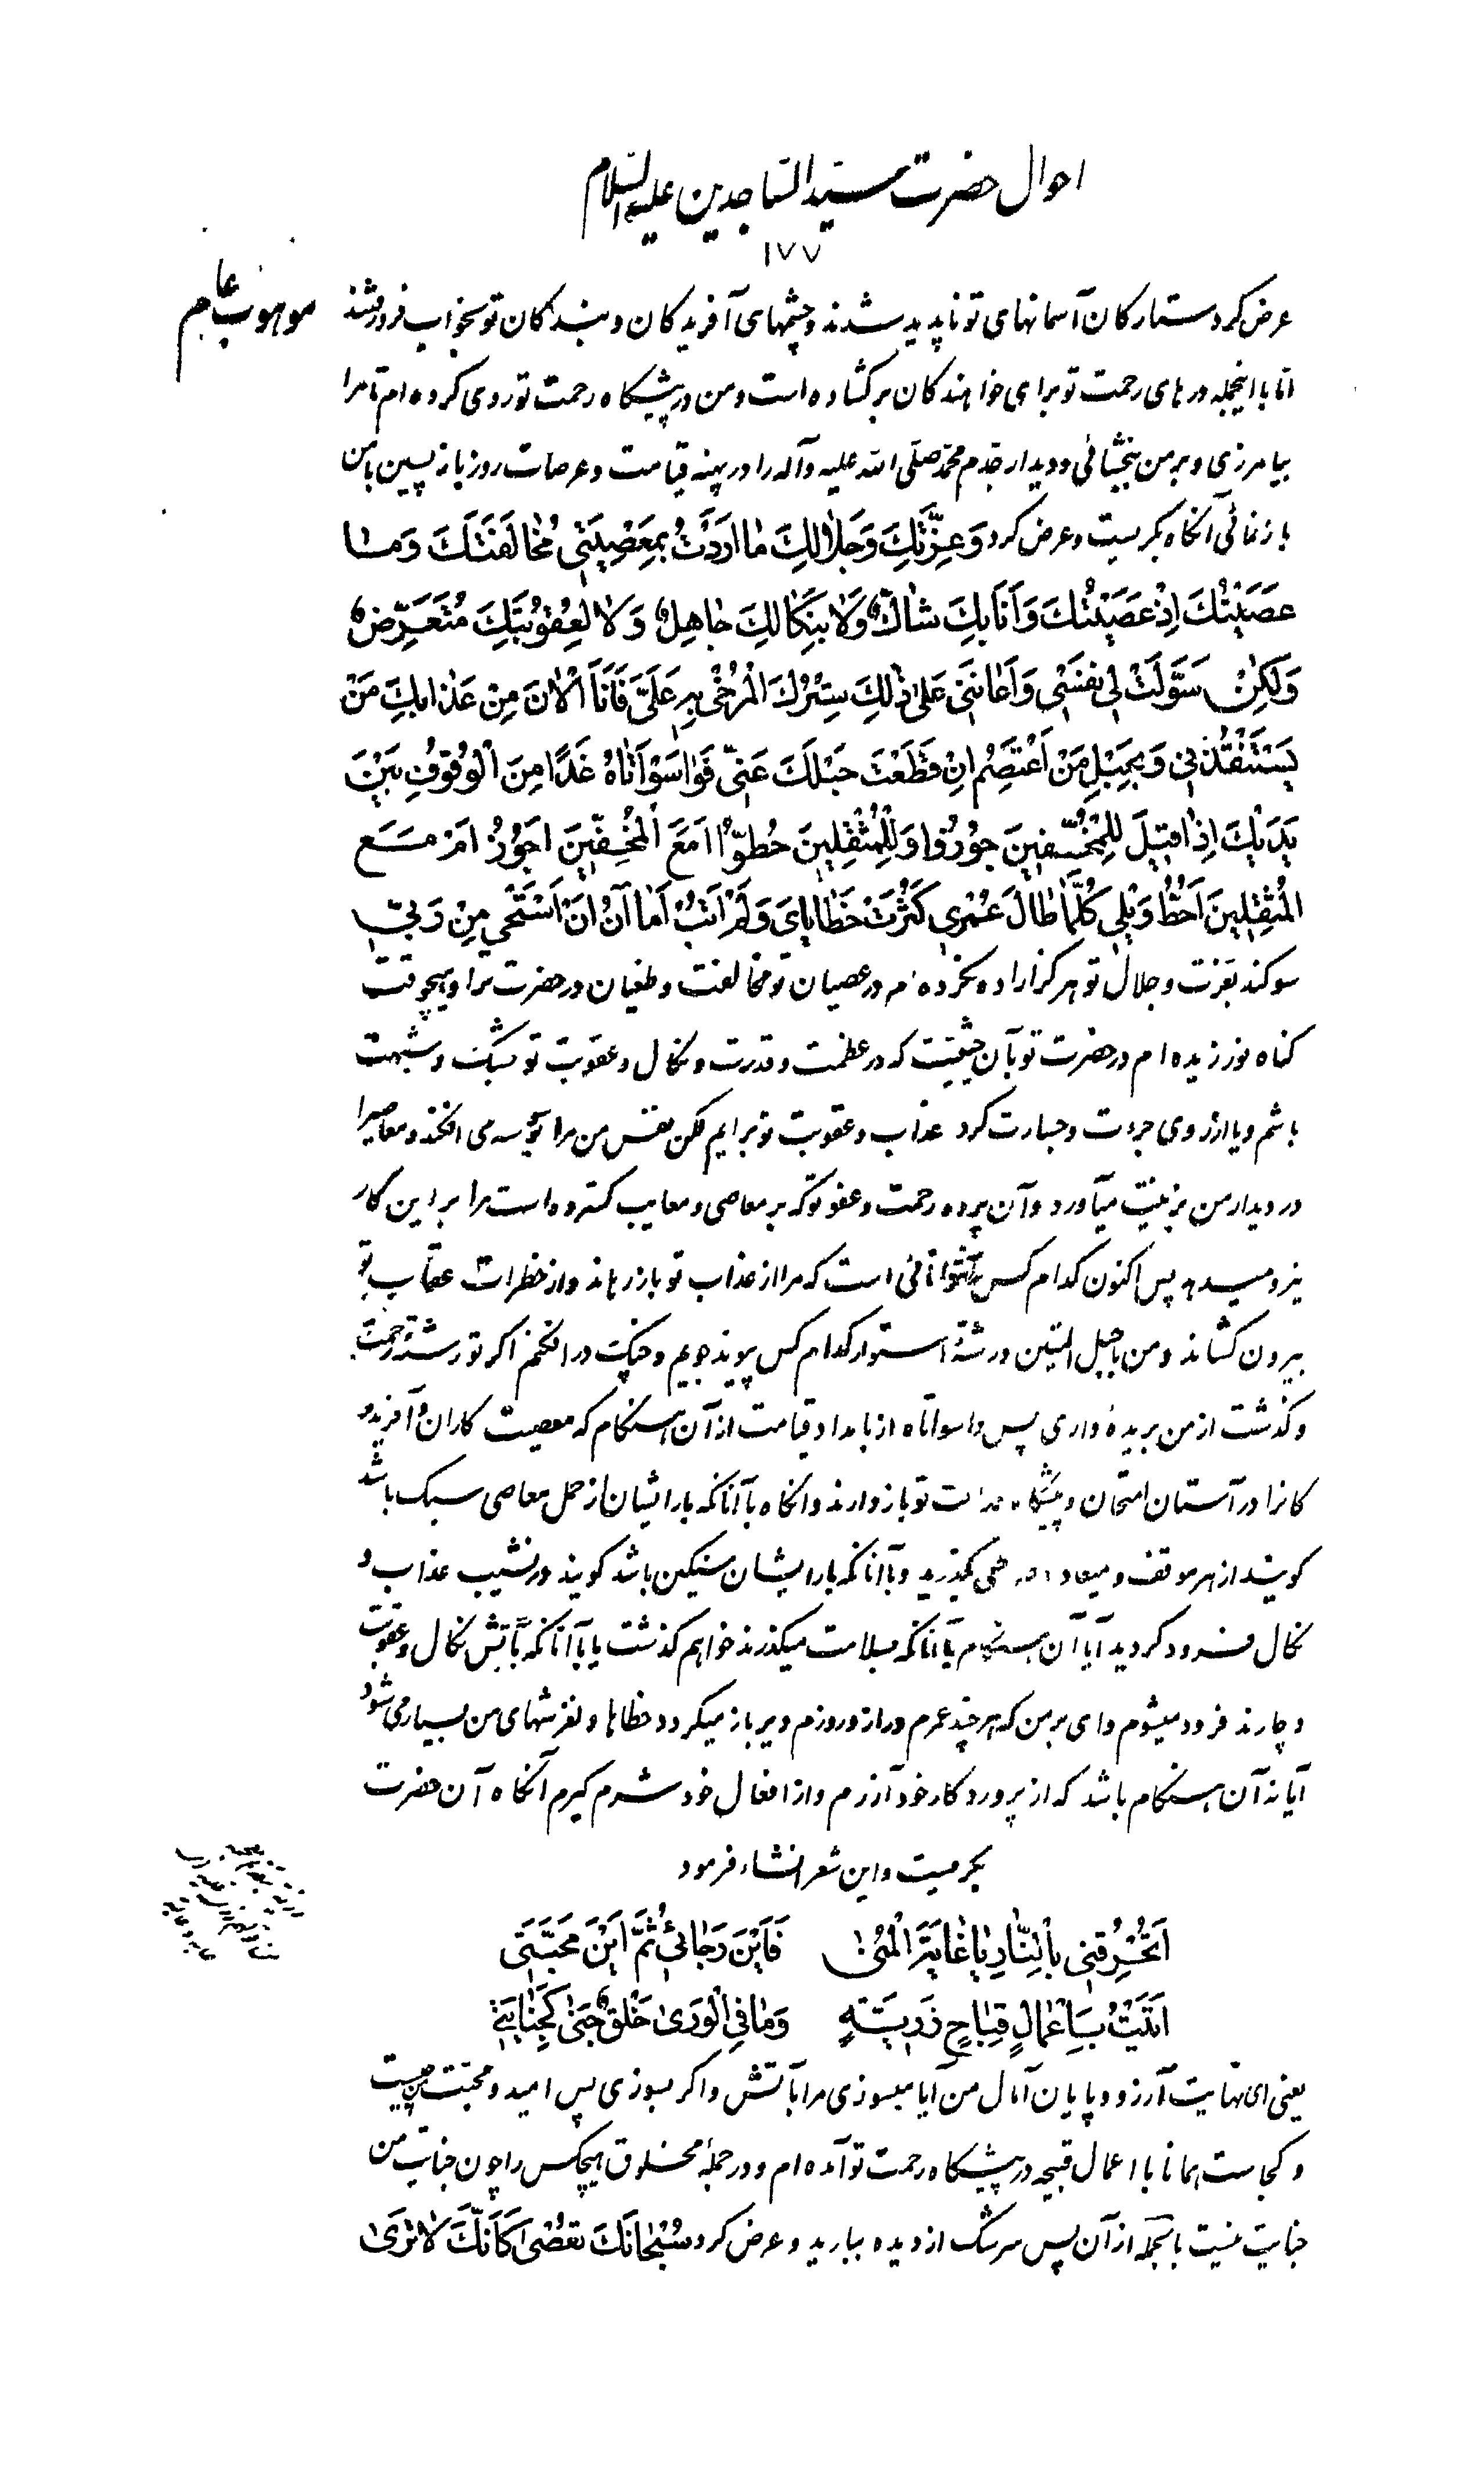 احوال حضرت سیّد السّاجدین علیه السّلام
۱۷۷
موهوب عام
عرض کرد ستارکان آسمانهای تو ناپدید شدند و چشمهای آفریدکان و بندکان تو بخواب فرو شد
امّا با اینجمله درهای رحمت تو برای خواهندکان برکشاده است و من در پیشکاه رحمت تو روی کرده ام تا مرا
بیامرزی و بر من ببخشائی و دیدار جدّم محمّد صلّی الله علیه و آله را در پهنه قیامت و عرصات روز بازپسین بامن
بازنمائی آنکاه بکریست و عرض کرد وَعِزَّتِكَ وَجَلٰالِكَ مٰا اَرَدْتُ بِمَعْصِيَتِي مُخٰالَفَتَكَ وَمٰا
عَصَيْتُكَ اِذْ عَصَيْتُكَ وَاَنَا بِكَ شٰاكٌّ وَلٰا بِنَكٰالِكَ جٰاهِلٌ وَلٰا لِعُقُوبَتِكَ مُتَعَرِّضٌ
وَلٰكِنْ سَوَّلَتْ لِي نَفْسِي وَاَعٰانَنِي عَلىٰ ذٰلِكَ سِتْرُكَ الْمُرْخىٰ بِهِ عَلَيَّ فَاَنَا الْاٰنَ مِنْ عَذٰابِكَ مَنْ
يَسْتَنْقِذُنِي وَبِحَبْلِ مَنْ اَعْتَصِمُ اِنْ قَطَعْتَ حَبْلَكَ عَنِّي فَوٰا سَوْاَتٰاهُ غَدًا مِنَ الْوُقُوفِ بَيْنَ
يَدَيْكَ اِذٰا قِيلَ لِلْمُخِفِّينَ جُوزُوا وَلِلْمُثْقِلِينَ حُطُّوا اَمَعَ الْمُخِفِّينَ اَجُوزُ اَمْ مَعَ
الْمُثْقِلِينَ اَحُطُّ وَيْلِي كُلَّمٰا طٰالَ عُمْرِي كَثُرَتْ خَطٰايٰايَ وَلَمْ اَتُبْ اَمٰا آنَ اَنْ اَسْتَحْيِ مِنْ رَبِّي
سوکند بعزت و جلال تو هرکز اراده نکرده ام در عصیان تو مخالفت و طغیان در حضرت ترا و هیچوقت
کناه نورزیده ام در حضرت تو بآن حیثیت که در عظمت و قدرت و نکال و عقوبت تو بشک و شبهت
باشم و یا از روی جرءت و جسارت کرد عذاب و عقوبت تو برایم لکن نفس من مرا بوسوسه می افکند و معاصیرا
در دیدار من بزینت میآورد و آن پرده رحمت و عفو تو که بر معاصی و معایب کسترده است مرا بر این کار
نیرو میدهد پس اکنون کدام کس توانائی است که مرا از عذاب تو باز رهاند و از خطرات عقاب تو
بیرون کشاند و من بحبل المتین و رشتهٔ استوار کدام کس پیوند جویم و چنک در افکنم اکر تو رشتهٔ رحمت
و کذشت از من بریده داری پس واسوأتاه از بامداد قیامت از آن هنکام که معصیت کاران و آفرید
کانرا در آستان امتحان و پیشکاه عدالت تو باز دارند و آنکاه بآنانکه بار ایشان از حمل معاصی سبک باشد
کویند از هر موقف و میعاد بکذرید و بآنانکه بار ایشان سنکین باشد کویند در نشیب عذاب و
نکال فرود کردید آیا آن هنکام بآنانکه بسلامت میکذرند خواهم کذشت یا بآنانکه بآتش نکال و عقوبت
دچارند فرود میشوم وای بر من که هر چند عمرم دراز و روزم دیر باز میکردد خطاها و لغزشهای من بسیار می شود
آیا نه آن هنکام باشد که از پروردکار خود آزرم و از افعال خود شرم کیرم آنکاه آن حضرت
بکریست و این شعر انشاء فرمود
اَتُحْرِقُنِي بِالنّٰارِ يٰا غٰايَةَ الْمُنىٰ فَاَيْنَ رَجٰائِي ثُمَّ اَيْنَ مَحَبَّتِي
اَتَيْتُ بِاَعْمٰالٍ قِبٰاحٍ زَرِيَّةٍ وَمٰا فِي الْوَرىٰ خَلْقٌ جَنىٰ كَجِنٰايَتِي
یعنی ای نهایت آرزو و پایان آمال من آیا میسوزی مرا بآتش و اکر بسوزی پس امید و محبّت من چیست
و کجاست همانا با اعمال قبیحه در پیشکاه رحمت تو آمده ام و در جملهٔ مخلوق هیچکس را چون جنایت من
جنایت نیست بالجمله از آن پس سرشک از دیده ببارید و عرض کرد سُبْحٰانَكَ تُعْصىٰ كَاَنَّكَ لٰا تُرىٰ